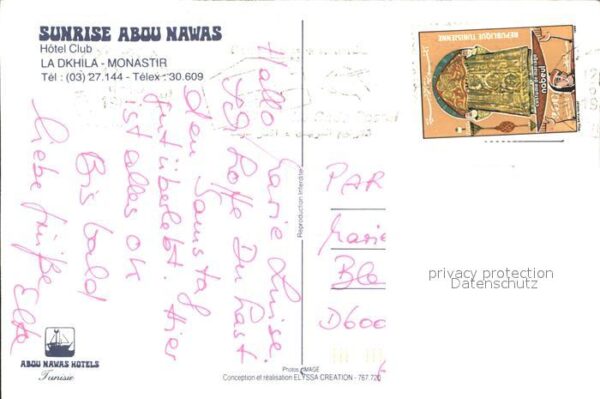 SUNRISE ABOU NAWAS
Hôtel Club
LA DKHILA - MONASTIR
Tél : (03) 27.144 - Télex : 30.609
Hallo Marie Luise.
Ich hoffe Du hast
den Samstag
gut überlebt. Hier
ist alles ok
Bis bald
liebe Grüße Elke
Reproduction Interdite
REPUBLIQUE TUNISIENNE
nabeul
PAR
Marie
Ble
D600
privacy protection
Datenschutz
ABOU NAWAS HOTELS
Tunisie
Photos : IMAGE
Conception et réalisation ELYSSA CREATION - 767.720